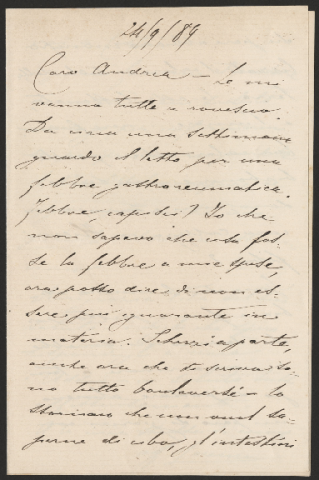 24/9/89
Caro Andrea – Le mi
vanno tutte a rovescio.
Da una settimana
guardo il letto per una
febbre gastroreumatica.
Febbre, capisci? Io che
non sapevo che cosa fos-
se la febbre a mie spese,
ora posso dire di non es-
sere più ignorante in
materia. Scherzi a parte,
anche ora che ti scrivo so-
no tutto bouleversé – lo
stomaco che non vuol sa-
perne di cibo, gl'intestini